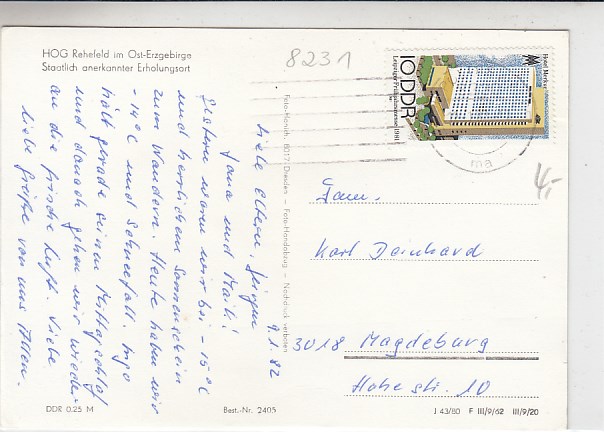 HOG Rehefeld im Ost-Erzgebirge
Staatlich anerkannter Erholungsort
8231
10 DDR
Leipziger Frühjahrsmesse 1981
ma
4,-
9.1.82
Liebe Eltern, Jürgen
Jana und Maik!
Gestern waren wir bei -15°C
und herrlichem Sonnenschein
zum Wandern. Heute haben wir
-14°C und Schneefall. Ingo
hält gerade seinen Mittagschlaf
und danach gehen wir wieder
an die frische Luft. Viele
liebe Grüße von uns Allen.
8017 Dresden — Foto-Handabzug — Nachdruck verboten
Fam.
Karl Deinhard
3018 Magdeburg
Hohe str. 10
DDR 0.25 M
Best.-Nr. 2405
J 43/80 F III/9/62 III/9/20